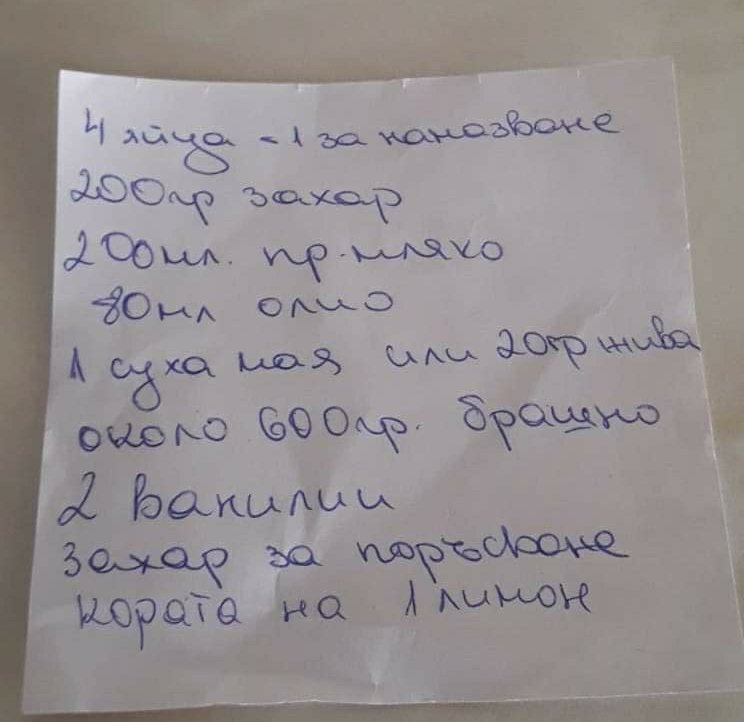 4 яйца - 1 за намазване
200гр захар
200мл. пр. мляко
80мл олио
1 суха мая или 20гр жива
около 600гр. брашно
2 ванилии
захар за поръсване
кората на 1 лимон